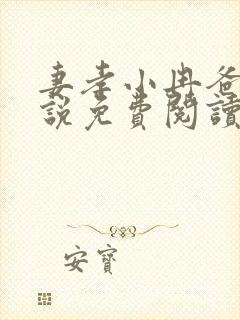 妻孝小冉爸
說免費閱讀
安寶